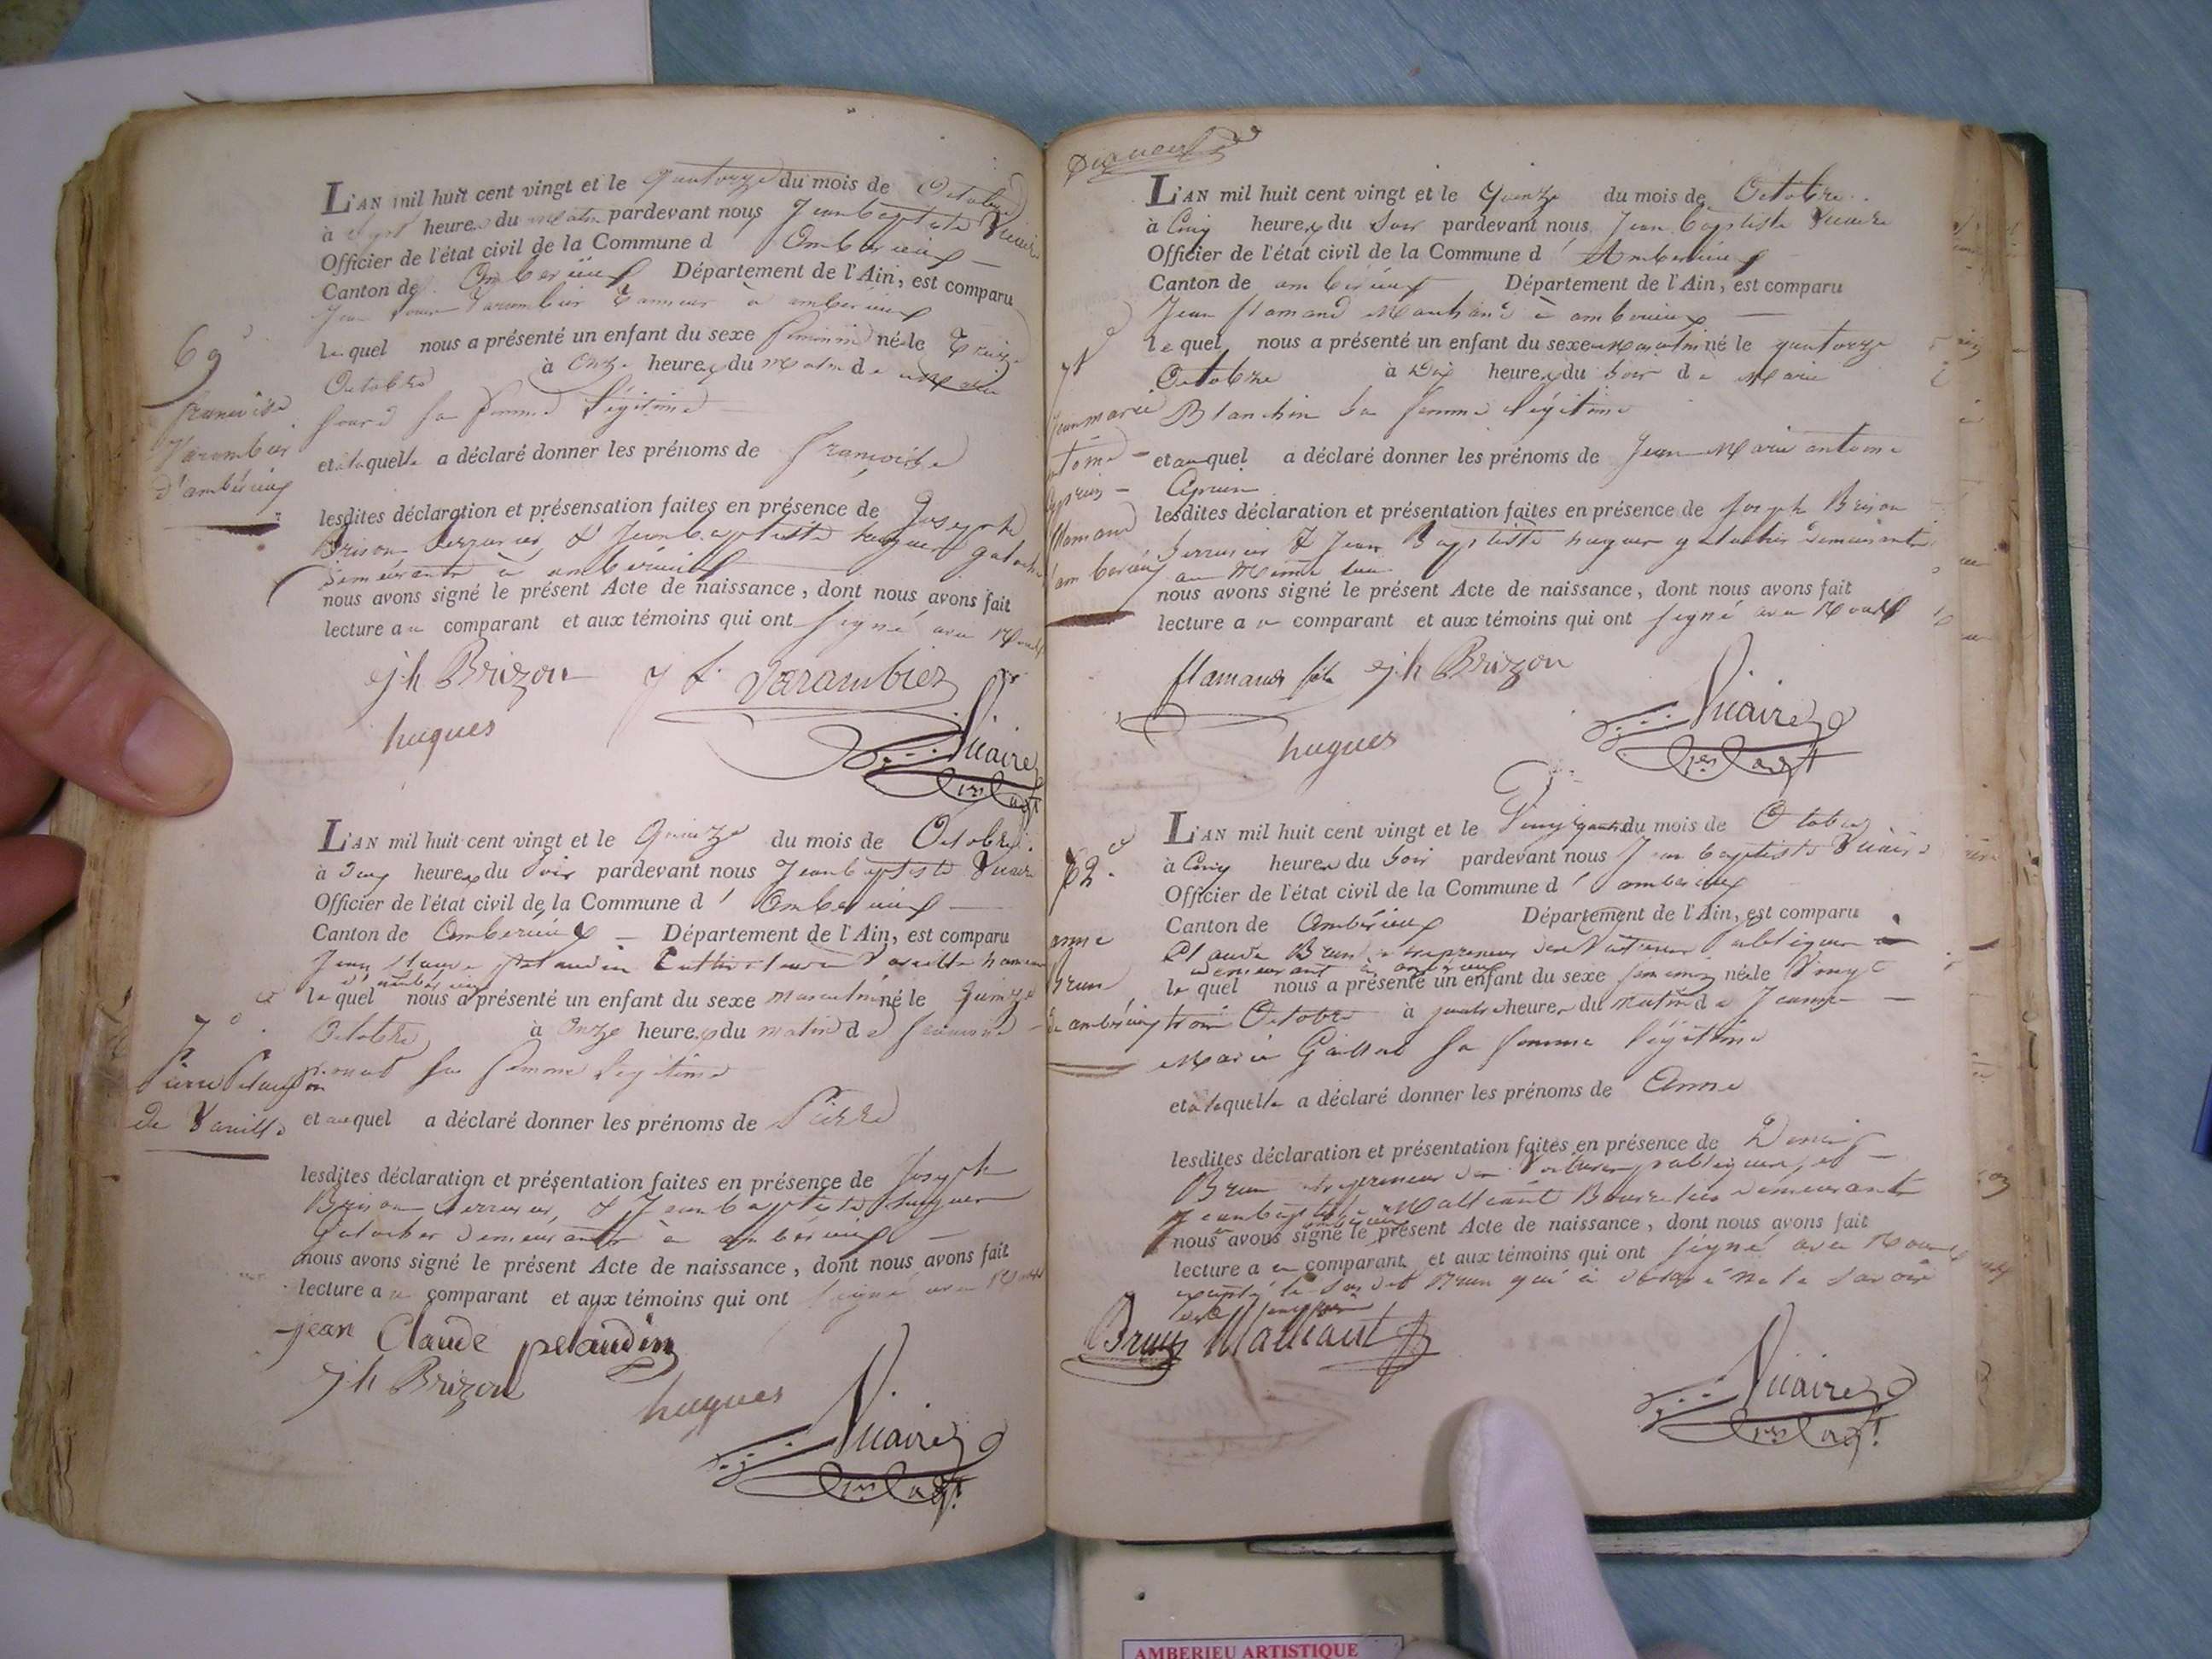 L'AN mil huit cent vingt et le quatorze du mois de Octobre
à sept heures du matin pardevant nous Jean baptiste Vicaire
Officier de l'état civil de la Commune d Ambérieux
Canton de Ambérieux Département de l'Ain, est comparu
Varambier Tanneur à ambérieux
69e
le quel nous a présenté un enfant du sexe feminin née le Treize
Octobre à Onze heures du matin de Marie
sa femme légitime
francoise
Varambier
d'ambérieux
et à laquelle a déclaré donner les prénoms de francoise
lesdites déclaration et présensation faites en présence de Joseph
Brison serrurier, & Jean baptiste hugues galochier
demeurants à ambérieux
nous avons signé le présent Acte de naissance, dont nous avons fait
lecture au comparant et aux témoins qui ont signé avec Nous
jh Brizon Varambier
hugues
Vicaire
1er adjt
L'AN mil huit cent vingt et le Quinze du mois de Octobre
à heures du soir pardevant nous Jean baptiste Vicaire
Officier de l'état civil de la Commune d' Ambérieux
Canton de Ambérieux Département de l'Ain, est comparu
Jean Claude pelaudin Cultivateur à Vareille hameau
d'ambérieux
le quel nous a présenté un enfant du sexe masculin né le Quinze
Octobre à Onze heures du matin de
sa femme légitime
70e
Pierre Pelaudin
de Vareille
et au quel a déclaré donner les prénoms de Pierre
lesdites déclaration et présentation faites en présence de Joseph
Brison serrurier, & Jean baptiste hugues
Galochier demeurants à ambérieux
nous avons signé le présent Acte de naissance, dont nous avons fait
lecture au comparant et aux témoins qui ont signé avec Nous
jean Claude pelaudin
jh Brizon hugues
Vicaire
1er adjt
L'AN mil huit cent vingt et le Quinze du mois de Octobre
à Cinq heures du soir pardevant nous Jean baptiste Vicaire
Officier de l'état civil de la Commune d' Ambérieux
Canton de ambérieux Département de l'Ain, est comparu
Jean flamand Marchand à ambérieux
le quel nous a présenté un enfant du sexe masculin né le quatorze
Octobre à Dix heures du soir de Marie
Blanchin sa femme légitime
71e
Jean marie
antoine
Cyprien
flamand
d'ambérieux
et au quel a déclaré donner les prénoms de Jean Marie antoine
Cyprien
lesdites déclaration et présentation faites en présence de Joseph Brison
serrurier & Jean Baptiste hugues galochier demeurants
au Même lieu
nous avons signé le présent Acte de naissance, dont nous avons fait
lecture au comparant et aux témoins qui ont signé avec Nous
flamand jh Brizon
hugues
Vicaire
1er adjt
L'AN mil huit cent vingt et le du mois de Octobre
à Cinq heures du soir pardevant nous Jean baptiste Vicaire
Officier de l'état civil de la Commune d' ambérieux
Canton de Ambérieux Département de l'Ain, est comparu
Claude Brun entrepreneur des Voitures publiques
demeurant à ambérieux
72e
anne
Brun
de ambérieux
le quel nous a présenté un enfant du sexe feminin née le Vingt
trois Octobre à quatre heures du matin de Jeanne
Marie Gaillat sa femme légitime
et à laquelle a déclaré donner les prénoms de Anne
lesdites déclaration et présentation faites en présence de Denis
Brun entrepreneur des Voitures publiques, et
Jean baptiste Malleant Bourrelier demeurants
à ambérieux
nous avons signé le présent Acte de naissance, dont nous avons fait
lecture au comparant et aux témoins qui ont signé avec Nous
excepté le Brun qui a déclaré ne le savoir
Brun Malleant
Vicaire
1er adjt
AMBERIEU ARTISTIQUE